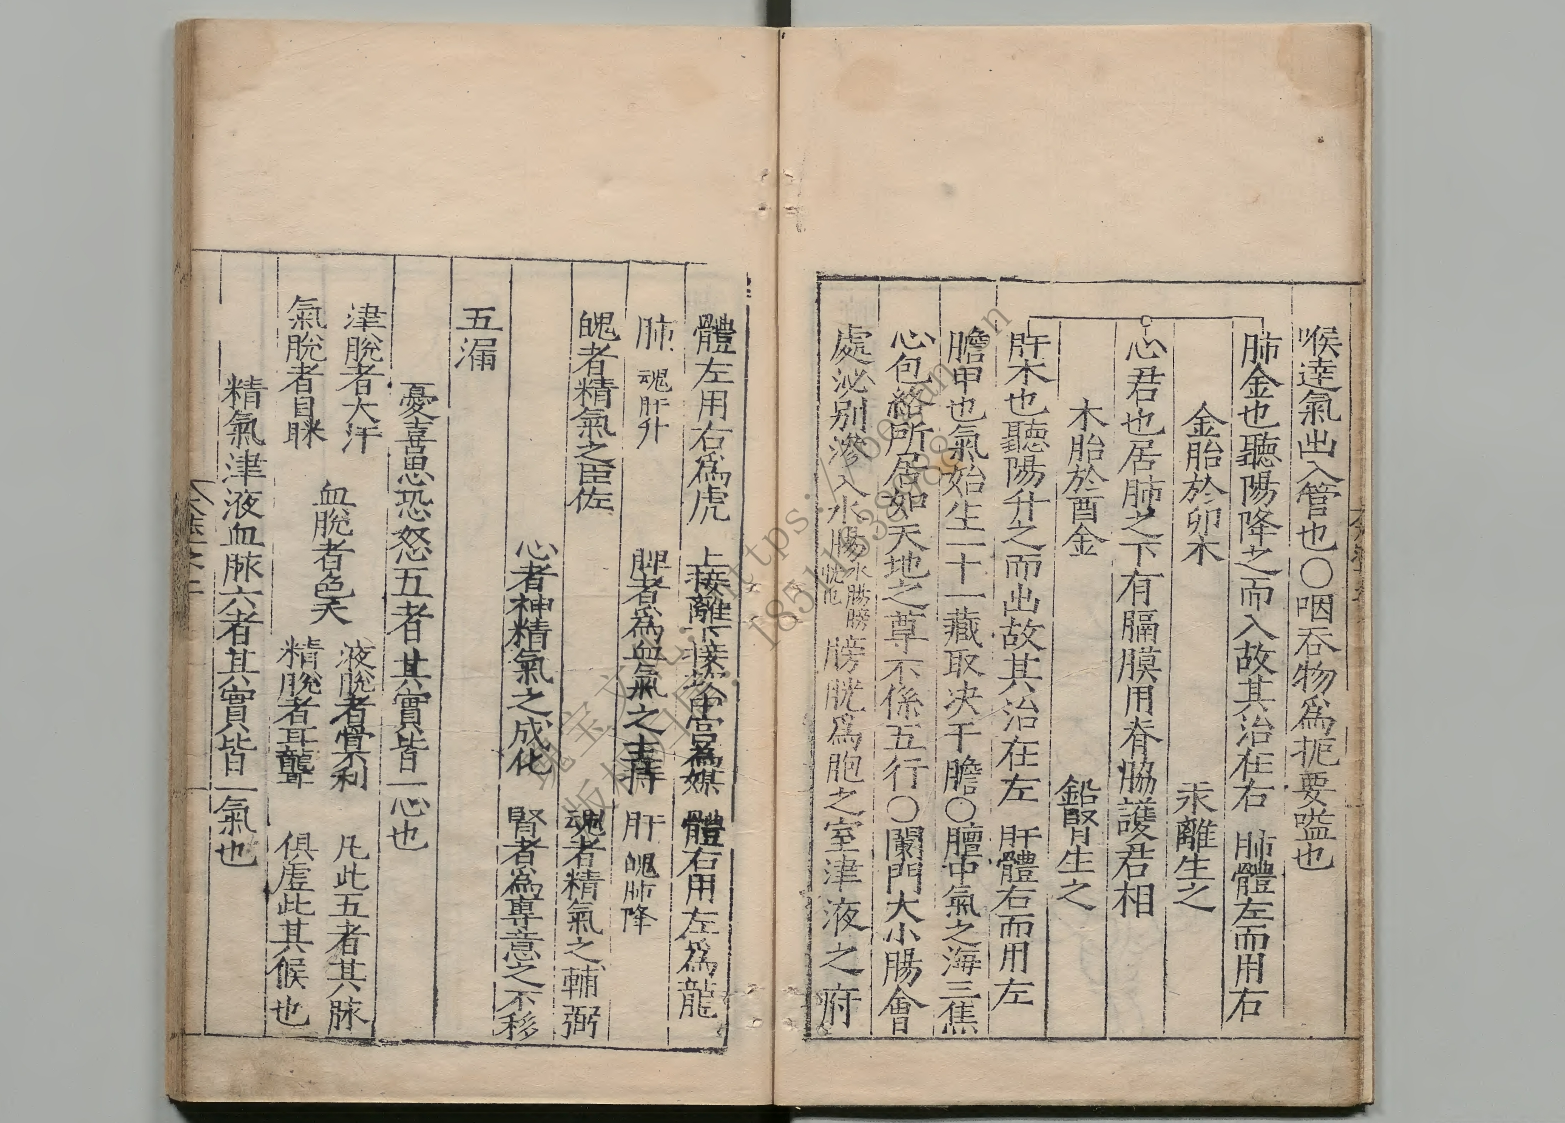 喉達氣出入管也〇咽吞物爲扼要嗌也
肺金也聽陽降之而入故其治在右 肺體左而用右
金胎於卯木 汞離生之
心君也居肺之下有膈膜用脊脇護君相
木胎於酉金 鉛腎生之
肝木也聽陽升之而出故其治在左 肝體右而用左
膽甲也氣始生二十一藏取决于膽〇膻中氣之海三焦
心包絡所居如天地之尊不係五行〇闌門大小腸會
處泌别滲入水腸 膀胱爲胞之室津液之府
體左用右爲虎 上接離下接 宮爲媒 體右用左爲龍
肺 魂肝升 脾者爲血氣之 肝 魄肺降
魄者精氣之臣佐 魂者精氣之輔弼
心者神精氣之成化 腎者爲專意之不移
五漏
憂喜思恐怒五者其實皆一心也
津脫者大汗 血脫者色夭 液脫者骨不利 凡此五者其脉
氣脫者目眯 精脫者耳聾 俱虛此其候也
精氣津液血脈六者其實皆一氣也